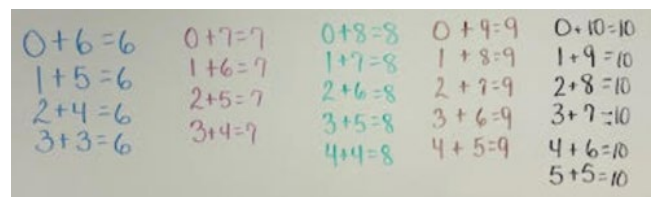 0+6=6
1+5=6
2+4=6
3+3=6
0+7=7
1+6=7
2+5=7
3+4=7
0+8=8
1+7=8
2+6=8
3+5=8
4+4=8
0+9=9
1+8=9
2+7=9
3+6=9
4+5=9
0+10=10
1+9=10
2+8=10
3+7=10
4+6=10
5+5=10